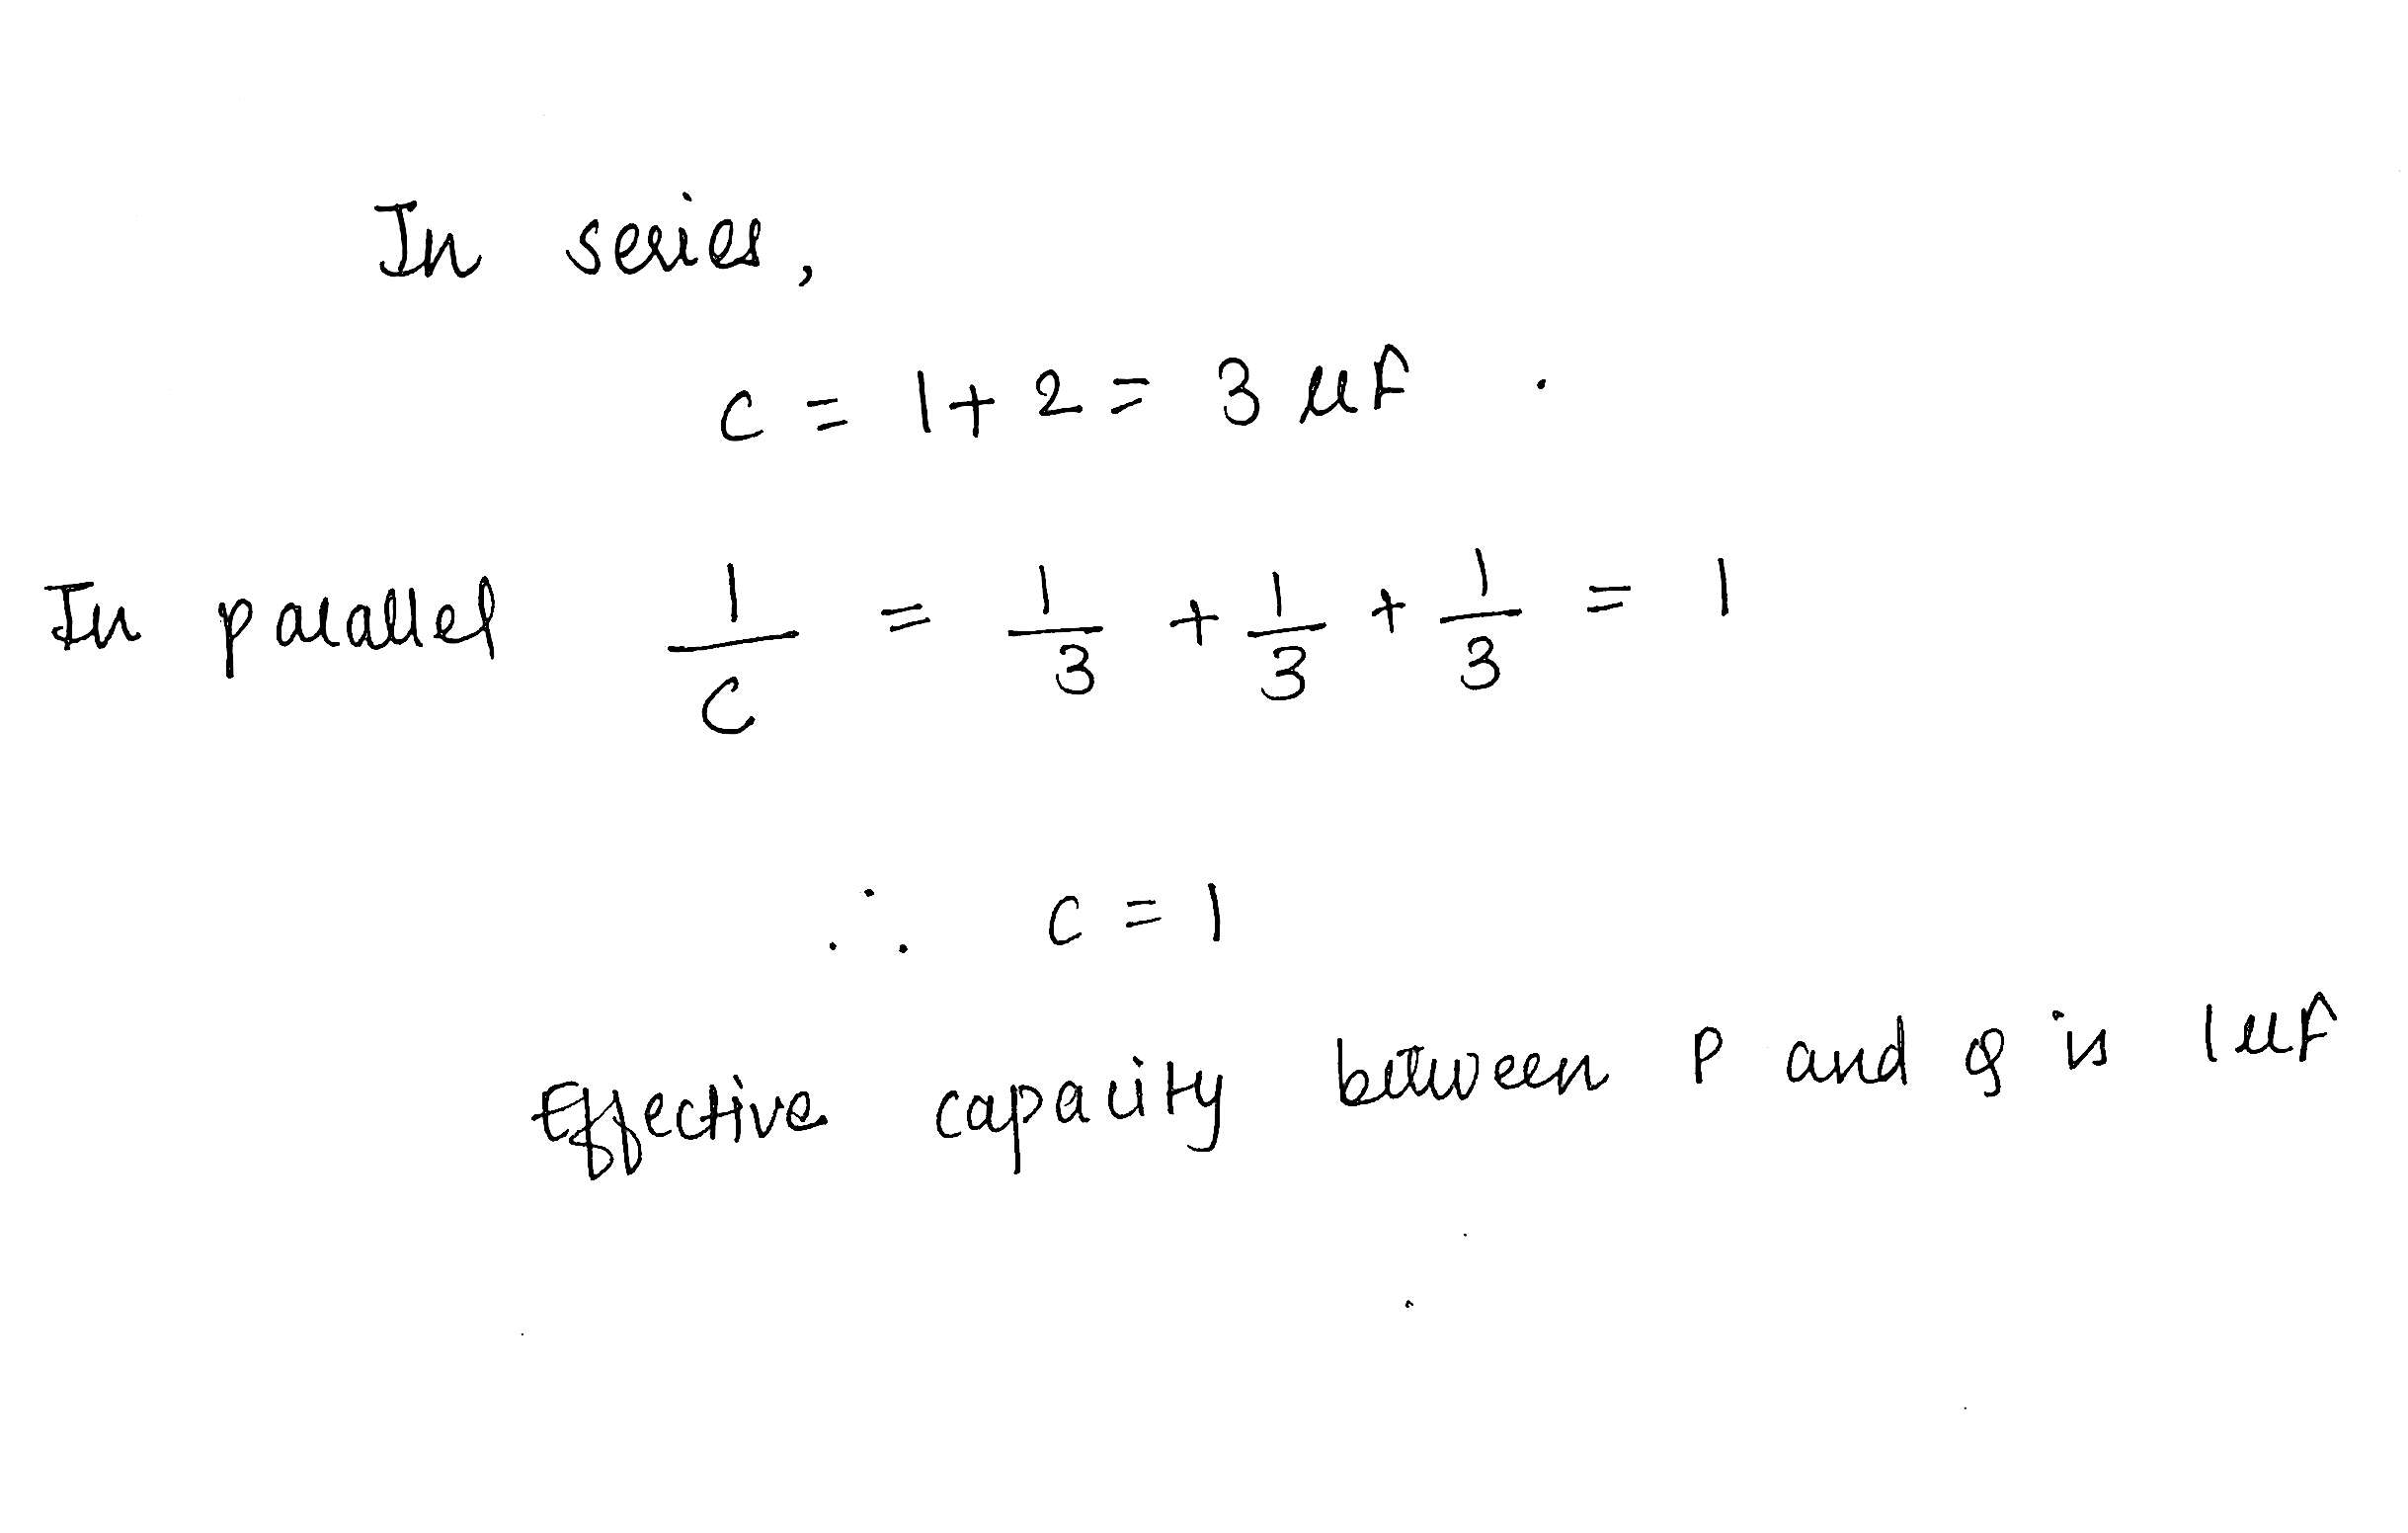 In series,
c = 1 + 2 = 3 μF .
In parallel 1/C = 1/3 + 1/3 + 1/3 = 1
∴ c = 1
Effective capacity between P and Q is 1μF